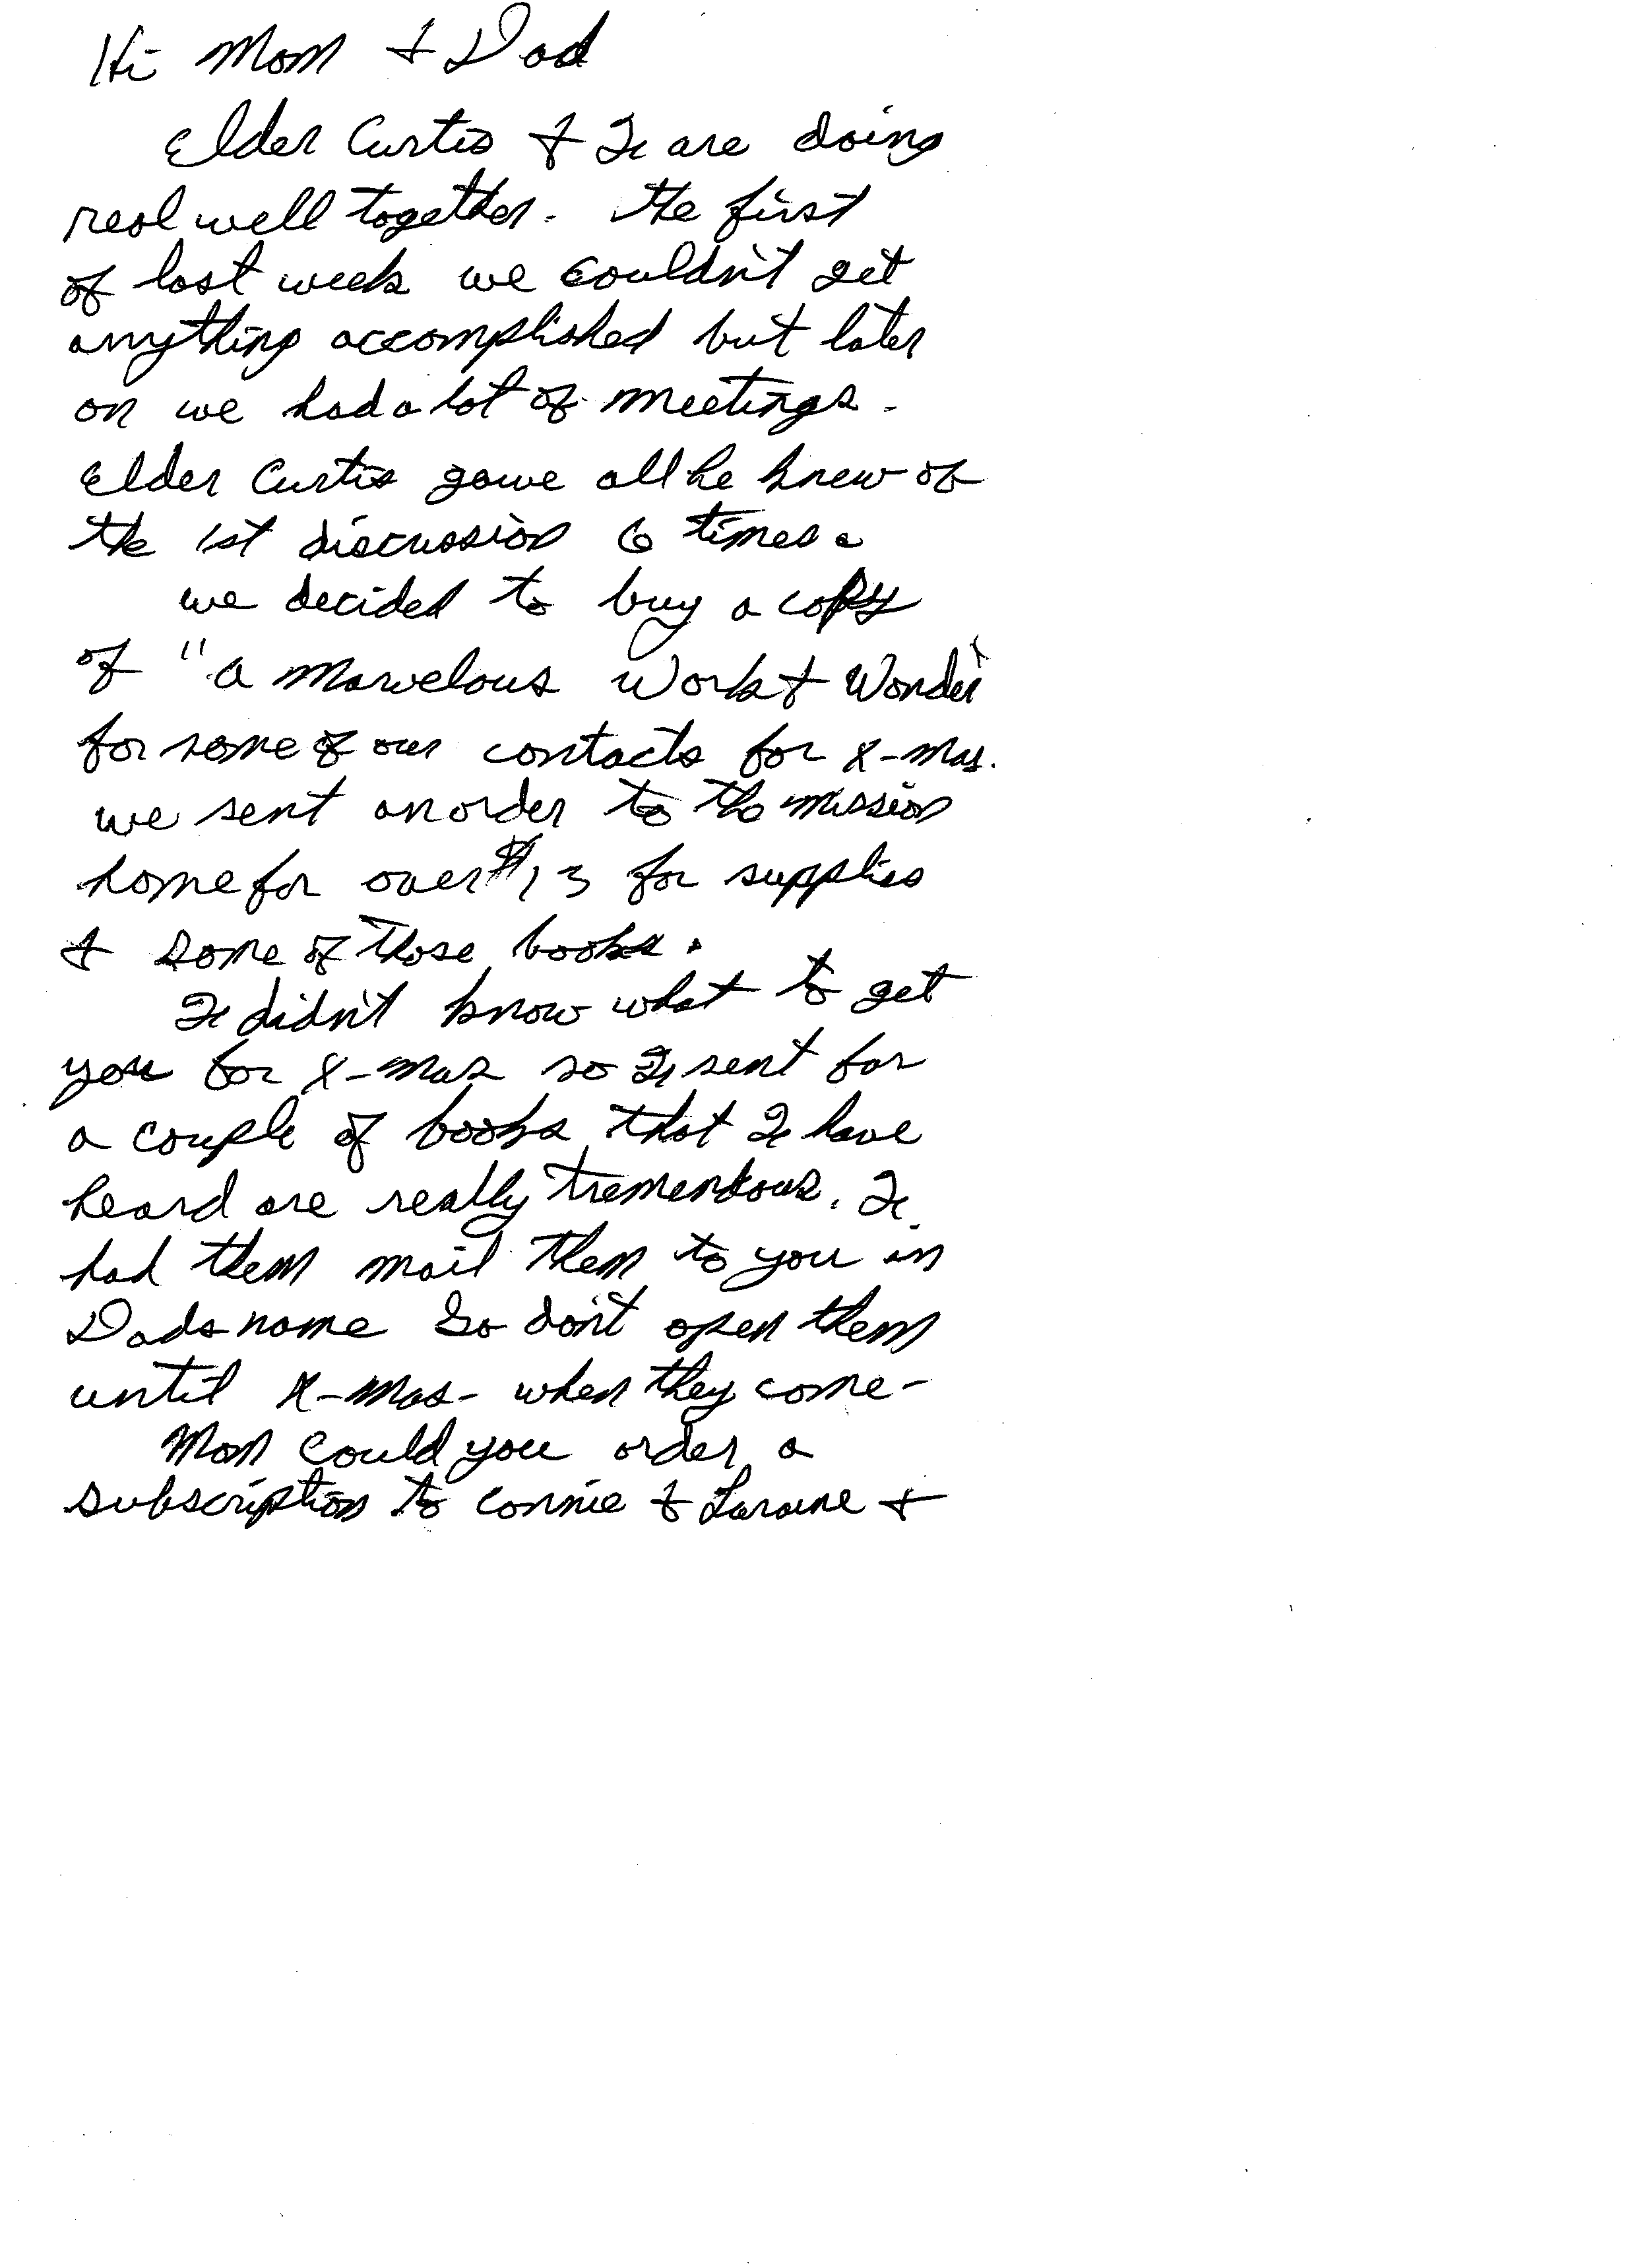 Hi Mom & Dad
Elder Curtis & I are doing
real well together. The first
of last week we couldn't get
anything accomplished but later
on we had a lot of meetings.
Elder Curtis gave all he knew of
the 1st discussion 6 times.
we decided to buy a copy
of "A Marvelous Work & Wonder"
for some of our contacts for X-mas.
we sent an order to the mission
home for over $13 for supplies
& some of those books.
I didn't know what to get
you for X-mas so I sent for
a couple of books that I have
heard are really tremendous. I
had them mail them to you in
Dads name So don't open them
until X-mas- when they come-
Mom could you order a
subscription to Connie & Laraine &